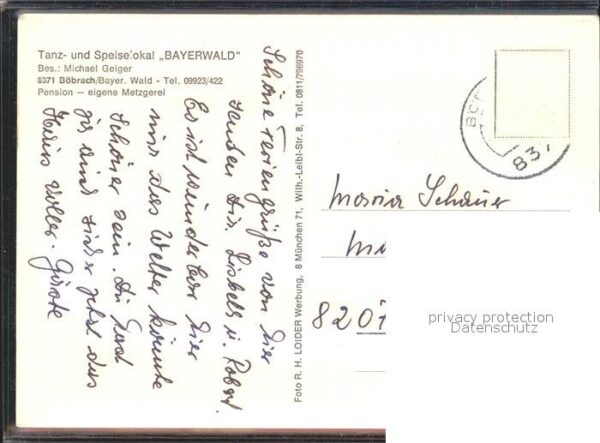 Tanz- und Speiselokal „BAYERWALD"
Bes.: Michael Geiger
8371 Böbrach/Bayer. Wald - Tel. 09923/422
Pension — eigene Metzgerei
Schöne Feriengrüße von hier
senden Dir, Lisbeth u. Robert.
Es ist wunderbar hier
nur das Wetter könnte
schöner sein. Die
und sind jetzt das
Foto R. H. LOIDER Werbung, 8 München 71, Wilh.-Leibl-Str. 8, Tel. 0811/796970
837
Maria Schauer
820
privacy protection
Datenschutz